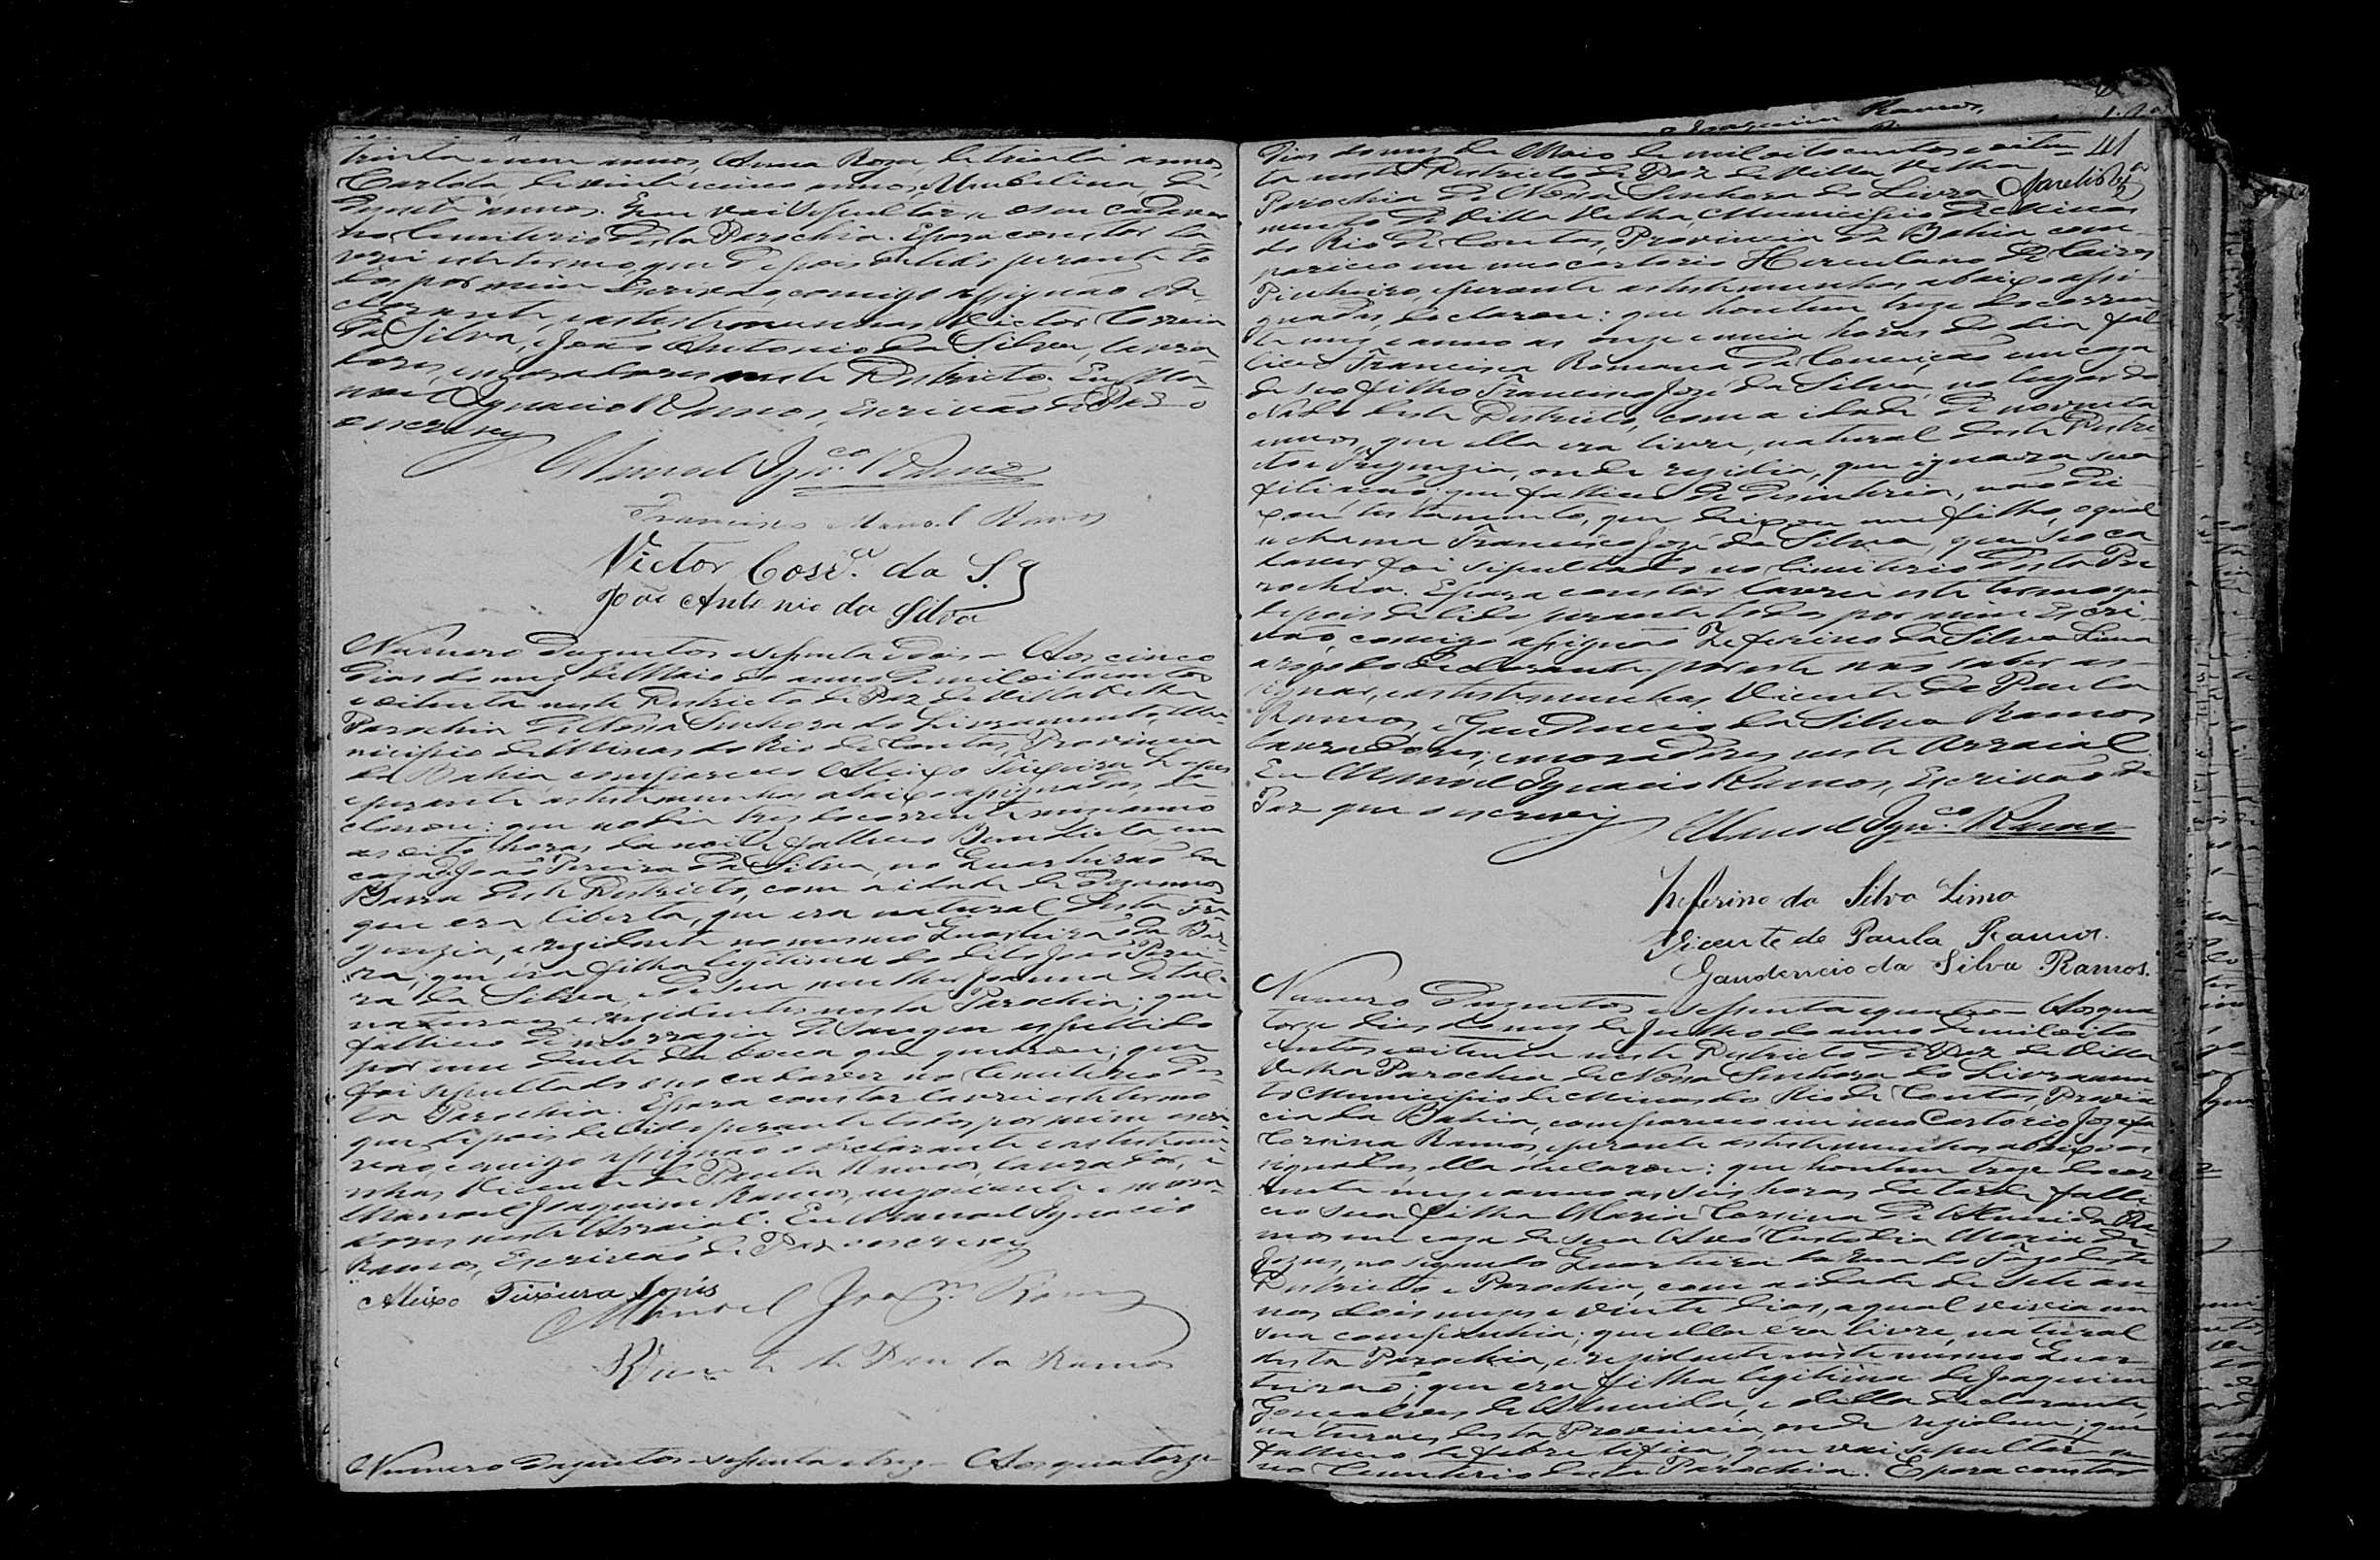 trinta e um annos, Anna Roza, de trinta annos,
Carlota, de vinte cinco annos, Umbilina, de
annos. E que vai sepultar-se o seu cadaver
no Cemiterio desta Parochia. E para constar la
vrei este termo que depois de lido perante to
dos por mim Escrivão, comigo assignão o de
clarante, e as testemunhas Victor Correia
da Silva, e João Antonio da Silva, lavra
dores, e moradores neste Districto. Eu Ma
noel Ignacio Ramos, Escrivão de Paz o
escrevy
Manoel Ignco. Ramos
Francisco Manoel Ramos
Victor da S.ª
João Antonio da Silva
Numero Duzentos e septenta e dois – Aos cinco
dias do mez de Maio do anno de mil oitocentos
e oitenta neste Districto de Paz de Villa Velha
Parochia de Nossa Senhora do Livramento, Mu
nicipio de Minas do Rio de Contas, Provincia
da Bahia, compareceo Aleixo Teixeira Lopes
e perante as testemunhas abaixo assignadas, de
clarou: que no dia tres do corrente mez e anno
as oito horas da noite falleceo Benedicta, em
caza de João Pereira da Silva, no Quarteirão da
Barra deste Districto, com a idade de annos
que era liberta, que era natural desta Fre
guezia, e rezidente no mesmo Quarteirão da Bar
ra; que era filha legitima do dito João Perei
ra da Silva, e de sua mulher Joanna de tal
naturaes e rezidentes nesta Parochia; que
falleceo de morragia de sangue expellido
por um dente da boca que quebrou; que
foi sepultado seu cadaver no Cemiterio des
ta Parochia. E para constar lavrei este termo
que depois de lido perante todos por mim escri
vão, comigo assignão o declarante e as testemu
nhas Vicente de Paula Ramos, lavrador, e
Manoel Joaquim Ramos, negociante e mora
dores neste Arraial. Eu Manoel Ignacio
Ramos, Escrivão de Paz o escrevy
Aleixo Teixeira Lopes
Manoel Joaqm. Ramos
Vicente de Paula Ramos
Numero Duzentos e septenta e trez – Aos quatorze
41
dias do mez de Maio de mil oitocentos e oiten
ta neste Districto de Paz de Villa Velha
Parochia de Nossa Senhora do Livra
mento de Villa Velha, Municipio de Minas
do Rio de Contas, Provincia da Bahia com
pareceo em meo cartorio Herculano de Caires
Pinheiro, e perante as testemunhas abaixo assi
gnadas, declarou: que hontem treze do corren
te mez e anno as onze e meia horas do dia fal
leceo Francisca Romana da Conceição em caza
de seo filho Francisco José da Silva, no lugar do
deste Districto, com a idade de noventa
annos, que ella era livre, natural deste Distri
cto e Freguezia, onde rezidia, que ignora sua
filiação, que falleceo de disinteria, não dei
xou testamento, que deixou um filho, o qual
se chama Francisco José da Silva, que seo ca
daver foi sepultado no Cemiterio desta Pa
rochia. E para constar lavrei este termo que
depois de lido perante todos por mim Escri
vão, comigo assignão Zeferino da Silva Lima
a rogo do declarante por este não saber as
signar, e as testemunhas Vicente de Paula
Ramos, e Gaudencio da Silva Ramos
lavradores, e moradores neste Arraial
Eu Manoel Ignacio Ramos, Escrivão de
Paz que o escrevy
Manoel Ignco. Ramos
Zeferino da Silva Lima
Vicente de Paula Ramos.
Gaudencio da Silva Ramos.
Numero Duzentos e septenta e quatro – Aos qua
torze dias do mez de Junho do anno de mil oito
centos e oitenta neste Districto de Paz de Villa
Velha Parochia de Nossa Senhora do Livramen
to Municipio de Minas do Rio de Contas, Provin
cia da Bahia, compareceo em meo Cartorio Jozefa
Corsina Ramos, e perante as testemunhas abaixo as
signadas, ella declarou: que hontem treze do cor
rente mez e anno as seis horas da tarde falle
ceo sua filha Maria Corsina de Almeida Ra
mos em caza de sua Avó Custodia Maria de
Jezus, no segundo Quarteirão da Rua do deste
Districto e Parochia, com a idade de sete an
nos dois mezes e vinte dias, a qual vivia em
sua companhia; que ella era livre, natural
desta Parochia, e rezidente neste mesmo Quar
teirão; que era filha legitima de Joaquim
Gonçalves de Almeida, e della declarante,
naturaes desta Provincia, onde rezidem; que
falleceo de febre tifica, que vai sepultar-se
no Cemiterio desta Parochia. E para constar